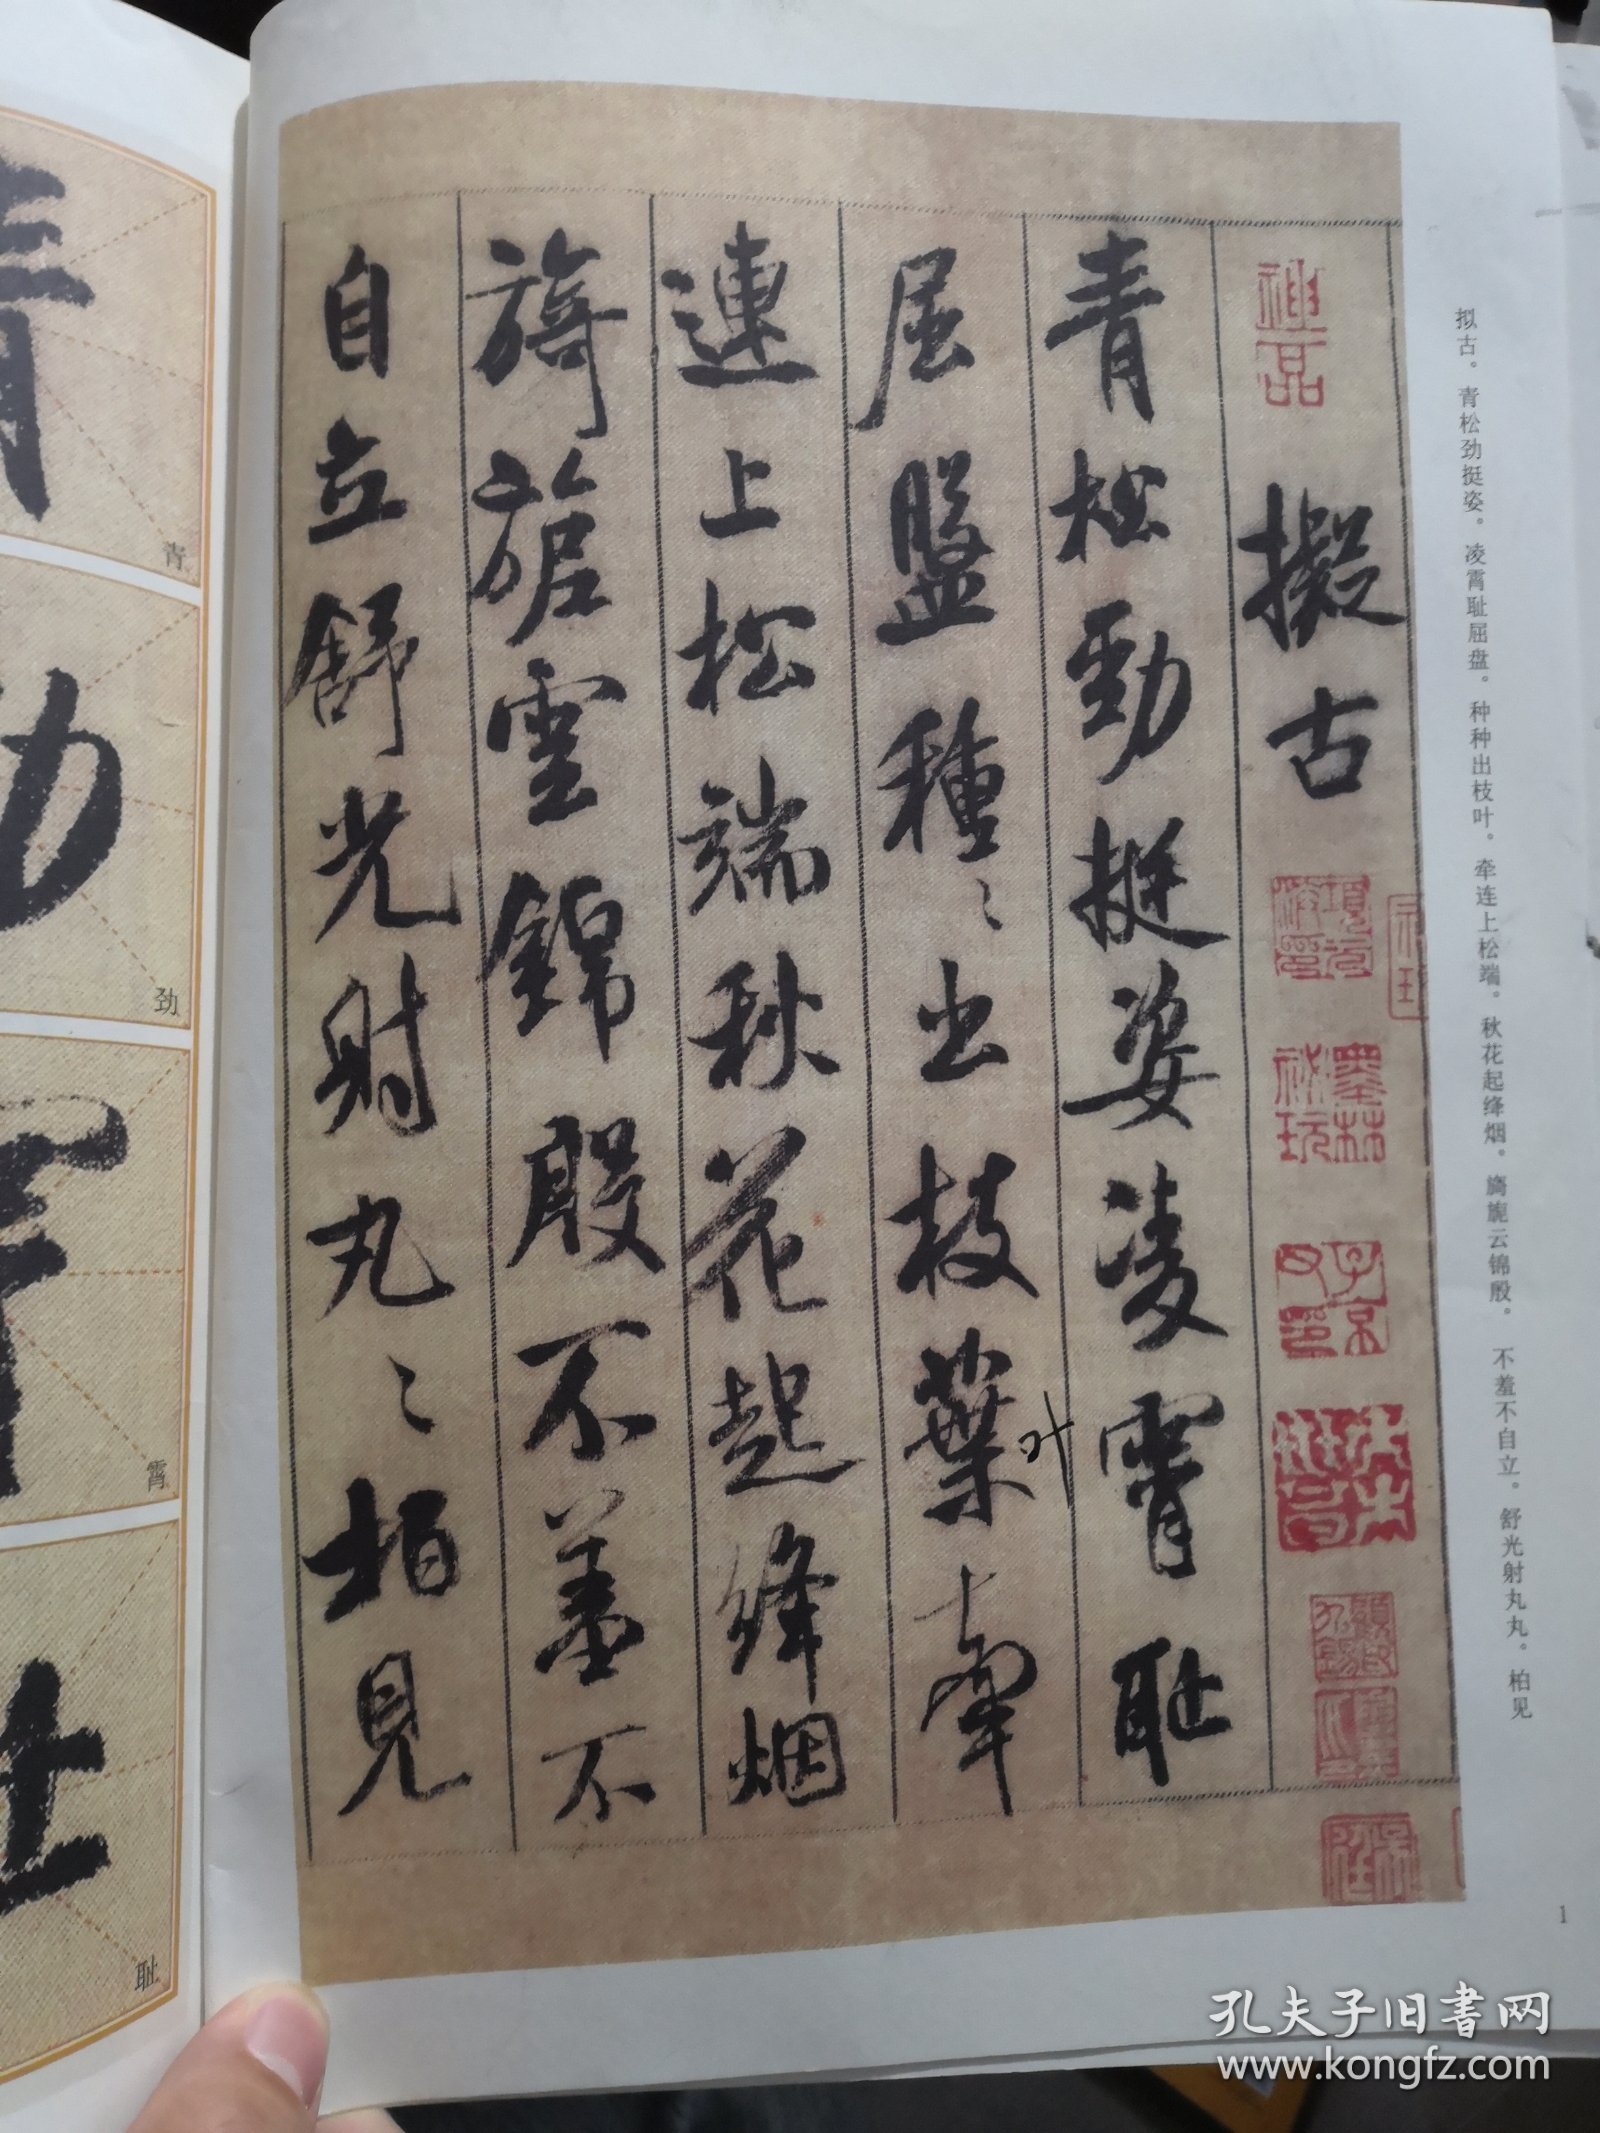 擬古
青松勁挺姿凌霄耻
屈盤種〻出枝葉牽
連上松端秋花起絳烟
旖旎雲錦殷不羞不
自立舒光射丸〻柏見
叶
神品
拟古。青松劲挺姿。凌霄耻屈盘。种种出枝叶。牵连上松端。秋花起绛烟。旖旎云锦殷。不羞不自立。舒光射丸丸。柏见
青
劲
霄
耻
1
孔夫子旧书网
www.kongfz.com